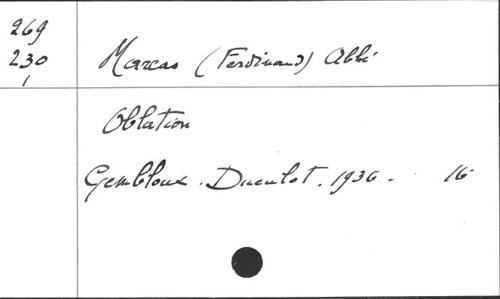 269
230 Marcas (Ferdinand) Abbé
1
Oblation
Gembloux. Duculot. 1936. 16